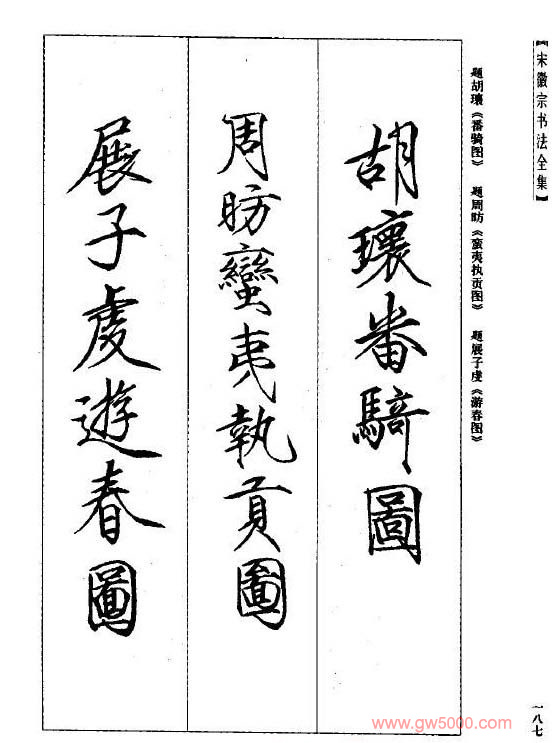 【宋徽宗书法全集】
题胡瓌《番骑图》 题周昉《蛮夷执贡图》 题展子虔《游春图》
胡瓌番騎圖
周昉蠻夷執貢圖
展子虔遊春圖
一八七
www.gw5000.com